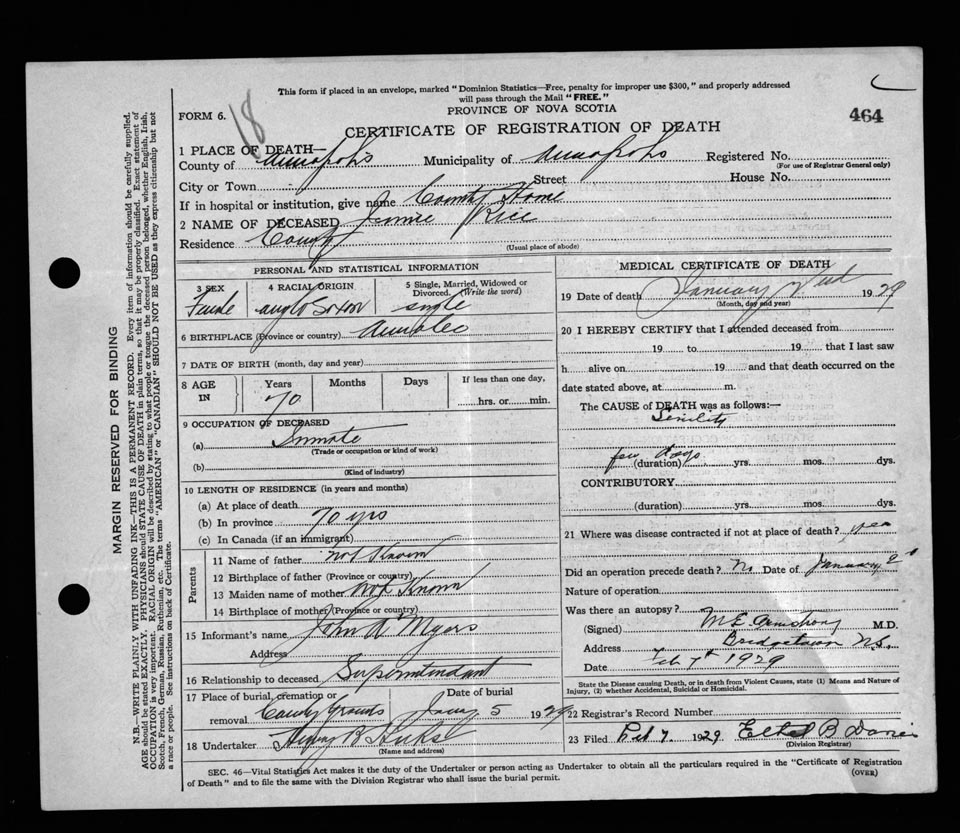 This form if placed in an envelope, marked "Dominion Statistics—Free, penalty for improper use $300," and properly addressed
will pass through the Mail "FREE."
PROVINCE OF NOVA SCOTIA
FORM 6.
18
464
CERTIFICATE OF REGISTRATION OF DEATH
1 PLACE OF DEATH—
County of Annapolis Municipality of Annapolis Registered No.
(For use of Registrar General only)
City or Town Street House No.
If in hospital or institution, give name County Home
2 NAME OF DECEASED Jennie Rice
Residence County
(Usual place of abode)
PERSONAL AND STATISTICAL INFORMATION
3 SEX 4 RACIAL ORIGIN 5 Single, Married, Widowed or
Divorced. (Write the word)
Female Anglo Saxon single
6 BIRTHPLACE (Province or country)
7 DATE OF BIRTH (month, day and year)
8 AGE IN Years Months Days If less than one day,
70 hrs. or min.
9 OCCUPATION OF DECEASED
(a) Inmate
(Trade or occupation or kind of work)
(b)
(Kind of industry)
10 LENGTH OF RESIDENCE (in years and months)
(a) At place of death
(b) In province 70 yrs
(c) In Canada (if an immigrant)
Parents
11 Name of father not Known
12 Birthplace of father (Province or country)
13 Maiden name of mother not Known
14 Birthplace of mother (Province or country)
15 Informant's name John A Myers
Address
16 Relationship to deceased Superintendant
17 Place of burial, cremation or Date of burial
removal County Grounds Jany 5 1929
18 Undertaker B Hicks
(Name and address)
MEDICAL CERTIFICATE OF DEATH
19 Date of death January 1929
(Month, day and year)
20 I HEREBY CERTIFY that I attended deceased from
19 to 19 that I last saw
h alive on 19 and that death occurred on the
date stated above, at m.
The CAUSE of DEATH was as follows:—
Senility
few days
(duration) yrs. mos. dys.
CONTRIBUTORY
(duration) yrs. mos. dys.
21 Where was disease contracted if not at place of death? yes
Did an operation precede death? No Date of January 2
Nature of operation
Was there an autopsy?
(Signed) M.E. Armstrong M.D.
Address Bridgetown N.S.
Date Feb 7th 1929
State the Disease causing Death, or in death from Violent Causes, state (1) Means and Nature of
Injury, (2) whether Accidental, Suicidal or Homicidal.
22 Registrar's Record Number
23 Filed Feb 7 1929 Ethel B
(Division Registrar)
SEC. 46—Vital Statistics Act makes it the duty of the Undertaker or person acting as Undertaker to obtain all the particulars required in the "Certificate of Registration
of Death" and to file the same with the Division Registrar who shall issue the burial permit. (OVER)
MARGIN RESERVED FOR BINDING
N.B.—WRITE PLAINLY WITH UNFADING INK—THIS IS A PERMANENT RECORD. Every item of information should be carefully supplied.
AGE should be stated EXACTLY. PHYSICIANS should STATE CAUSE OF DEATH in plain terms, so that it may be properly classified. Exact statement of
OCCUPATION is very important. RACIAL ORIGIN will be described by stating to what people or tongue the deceased person belonged, whether English, Irish,
Scotch, French, German, Russian, Ruthenian, etc. The terms "AMERICAN" or "CANADIAN" SHOULD NOT BE USED as they express citizenship but not
a race or people. See instructions on back of Certificate.